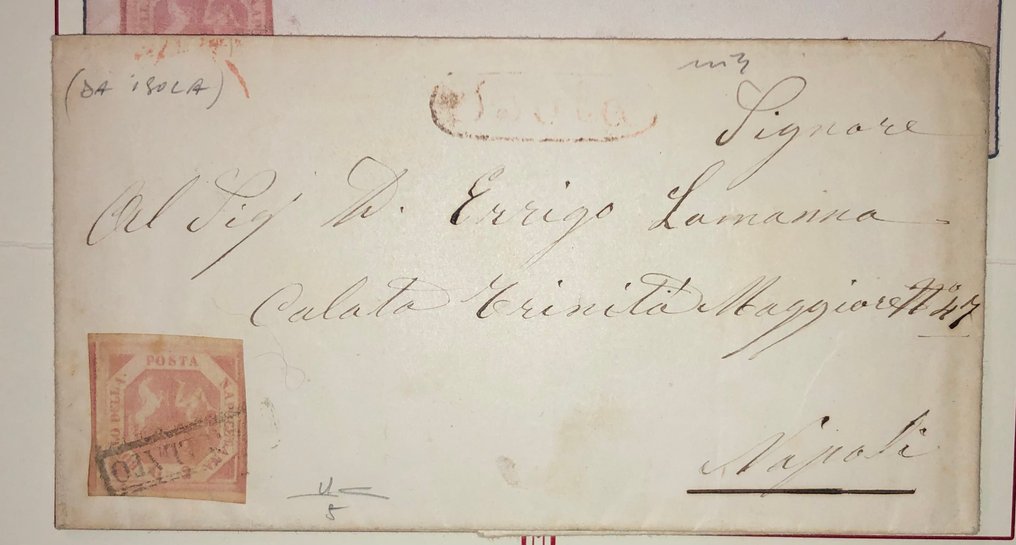 (DA ISOLA)
Signore
Al Sig D. Errigo Lamanna
Calata Trinità Maggiore N° 47
Napoli
POSTA
NAPOLETANA
O DELLA